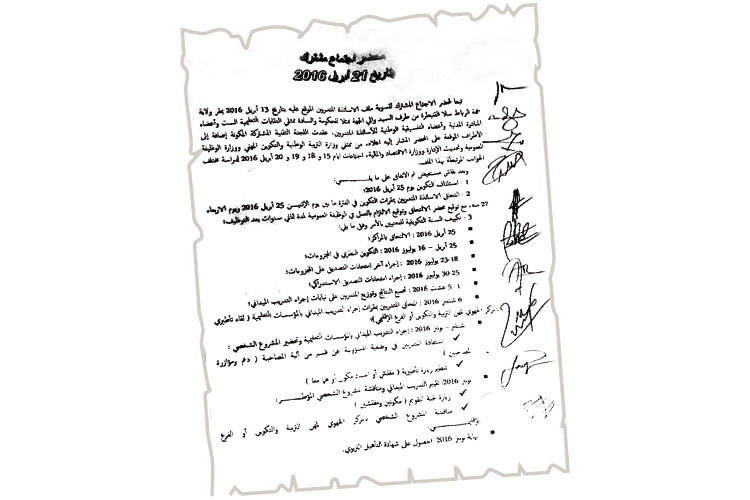 محضر اجتماع مشترك
بتاريخ 21 أبريل 2016
تبعا لمحضر الاجتماع المشترك لتسوية ملف الاساتذة المتدربين الموقع عليه بتاريخ 13 أبريل 2016 بمقر ولاية
جهة الرباط سلا القنيطرة من طرف السيد والي الجهة ممثلا للحكومة والسادة ممثلي النقابات التعليمية الست وأعضاء
المبادرة المدنية وأعضاء التنسيقية الوطنية للأساتذة المتدربين، عقدت اللجنة التقنية المشتركة المكونة إضافة إلى
الأطراف الموقعة على المحضر المشار إليه اعلاه، من ممثلي وزارة التربية الوطنية والتكوين المهني ووزارة الوظيفة
العمومية وتحديث الإدارة ووزارة الاقتصاد والمالية، اجتماعات أيام 15 و 18 و 19 و 20 أبريل 2016 لدراسة مختلف
الجوانب المرتبطة بهذا الملف.
وبعد نقاش مستفيض تم الاتفاق على ما يلي:
1 - استئناف التكوين يوم 25 أبريل 2016؛
2 - التحاق الاساتذة المتدربين بمقرات التكوين في الفترة ما بين يوم الإثنين 25 أبريل 2016 ويوم الاربعاء
27 منه، مع توقيع محضر الالتحاق وتوقيع الالتزام بالعمل في الوظيفة العمومية لمدة ثماني سنوات بعد التوظيف؛
3 - تكييف السنة التكوينية للمعنيين بالأمر وفق ما يلي:
▪ 25 أبريل 2016 : الالتحاق بالمراكز؛
▪ 25 أبريل – 16 يوليوز 2016 : التكوين النظري في المجزوءات؛
▪ 18-23 يوليوز 2016 : إجراء آخر امتحانات التصديق على المجزوءات؛
▪ 25-30 يوليوز 2016 : إجراء امتحانات التصديق الاستدراكي؛
▪ 1- 5 غشت 2016 : تجميع النتائج وتوزيع المتدربين على نيابات إجراء التدريب الميداني؛
▪ 6 شتنبر 2016 : التحاق المتدربين بمقرات إجراء التدريب الميداني بالمؤسسات التعليمية ( لقاء تأطيري
بالمركز الجهوي لمهن التربية والتكوين أو الفرع الإقليمي)؛
▪ شتنبر – نونبر 2016 : إجراء التدريب الميداني بالمؤسسات التعليمية وتحضير المشروع الشخصي :
✓ استفادة المتدربين في وضعية المسؤولية عن قسم من آلية المصاحبة ( دعم ومؤازرة
✓ تنظيم زيارة تأطيرية ( مفتش أو استاذ مكون أو هما معا )
▪ نونبر 2016: تقييم التدريب الميداني ومناقشة المشروع الشخصي المؤطر:
✓ زيارة لجنة التقويم ( مكونين ومفتشين )
✓ مناقشة المشروع الشخصي بالمركز الجهوي لمهن التربية والتكوين أو الفرع
الإقليمي.
▪ نهاية نونبر 2016 الحصول على شهادة التأهيل التربوي.